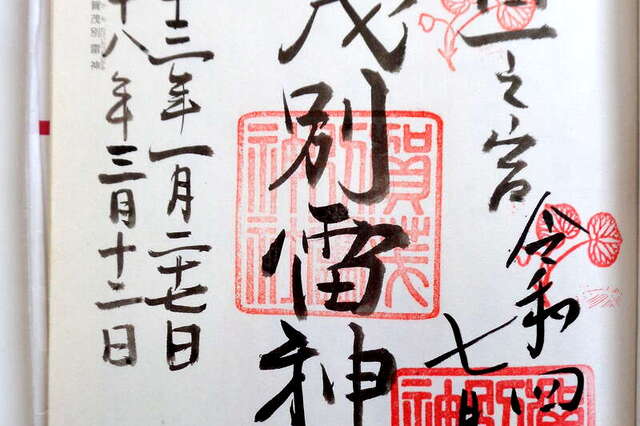 之宮
令和四
七月
茂別雷神
賀茂
別雷
神社
十三年一月二十七日
十八年三月十二日
賀茂別雷神